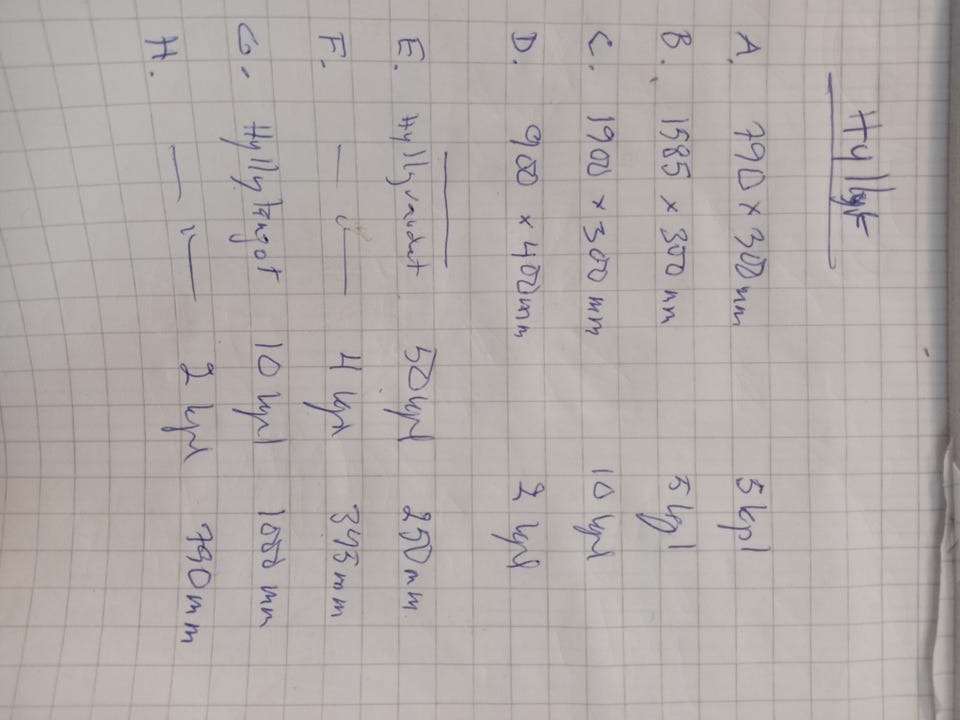 Hyllyt
A. 790 x 300 mm 5 kpl
B. 1585 x 300 mm 5 kpl
C. 1900 x 300 mm 10 kpl
D. 900 x 400 mm 2 kpl
E. Hyllyvaudet 50 kpl 250 mm
F. — " — 4 kpl 345 mm
G. Hyllytangot 10 kpl 1000 mm
H. — " — 2 kpl 790 mm